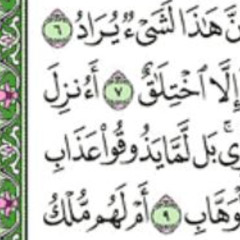 نَّ هَٰذَا لَشَىْءٌ يُرَادُ ٦
إِلَّا ٱخْتِلَٰقٌ ٧ أَءُنزِلَ
رِى ۚ بَل لَّمَّا يَذُوقُوا۟ عَذَابِ
وَهَّابِ ٩ أَمْ لَهُم مُّلْكُ